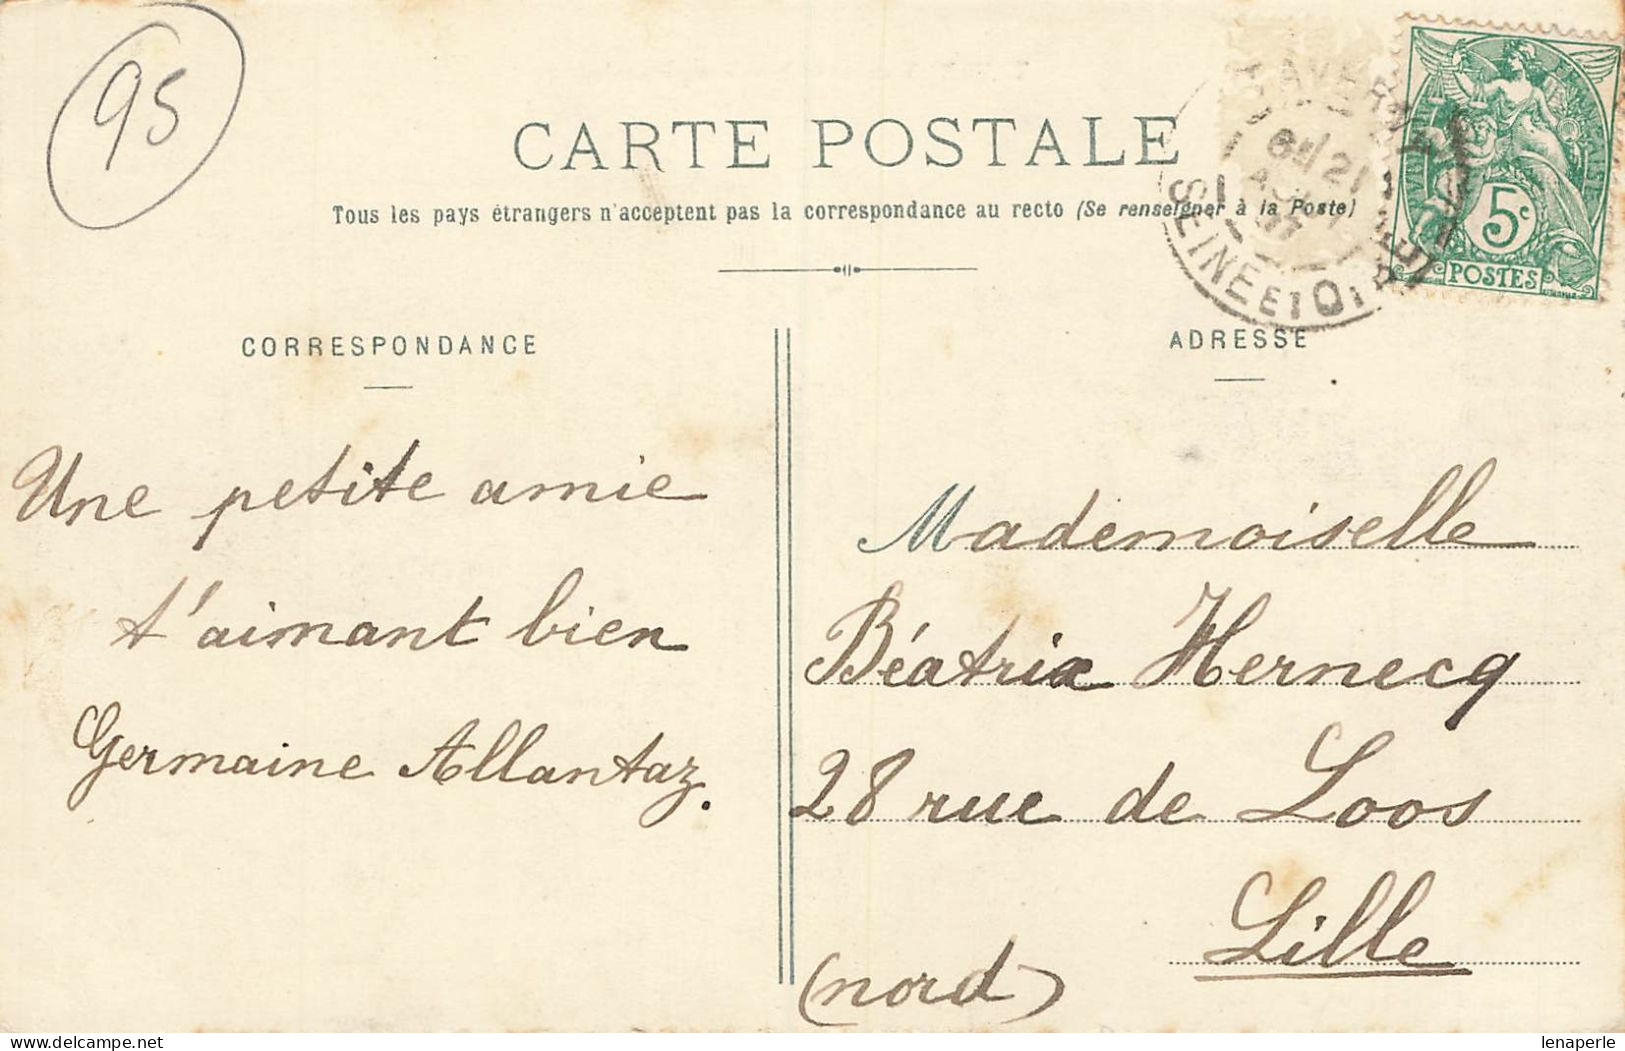 95
CARTE POSTALE
Tous les pays étrangers n'acceptent pas la correspondance au recto (Se renseigner à la Poste)
CORRESPONDANCE
ADRESSE
5c
POSTES
SEINE ET O
21
Une petite amie
t'aimant bien
Germaine Allantaz.
Mademoiselle
Béatrix Hernecq
28 rue de Loos
Lille
(nord)
lenaperle